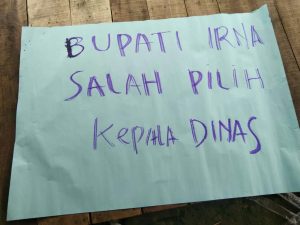 BUPATI IRNA
SALAH PILIH
KEPALA DINAS